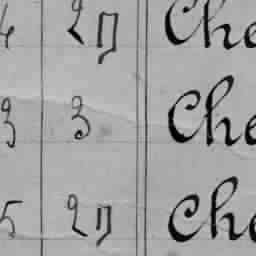 4 20 Che
3 3 Che
5 20 Che